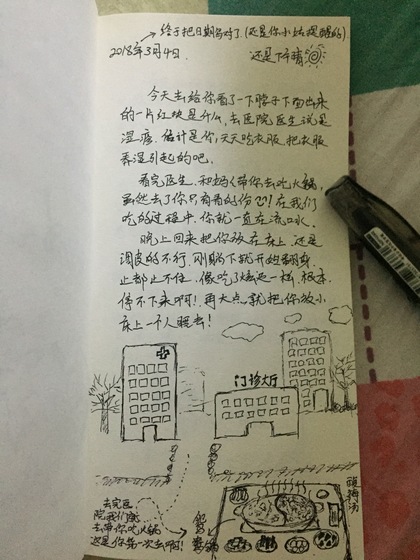 终于把日期写对了(还是你小姑提醒的)
2018年3月4日. 还是下午晴
今天去给你看了一下脖子下面出来
的一片红块是什么,去医院医生说是
湿疹. 估计是你天天吃衣服,把衣服
弄湿引起的吧.
看完医生,和妈人带你去吃火锅,
虽然去了你只有看的份!在我们
吃的过程中,你就一直在流口水.
晚上回来把你放在床上,还是
调皮的不行,刚躺下就开始翻身,
止都止不住,像吃了炫迈一样,根本
停不下来啊!再大点就把你放小
床上一个人睡去!
门诊大厅
酸梅汤
去完医
院我们就
去带你吃火锅
还是你第一次去啊!
鸳鸯锅